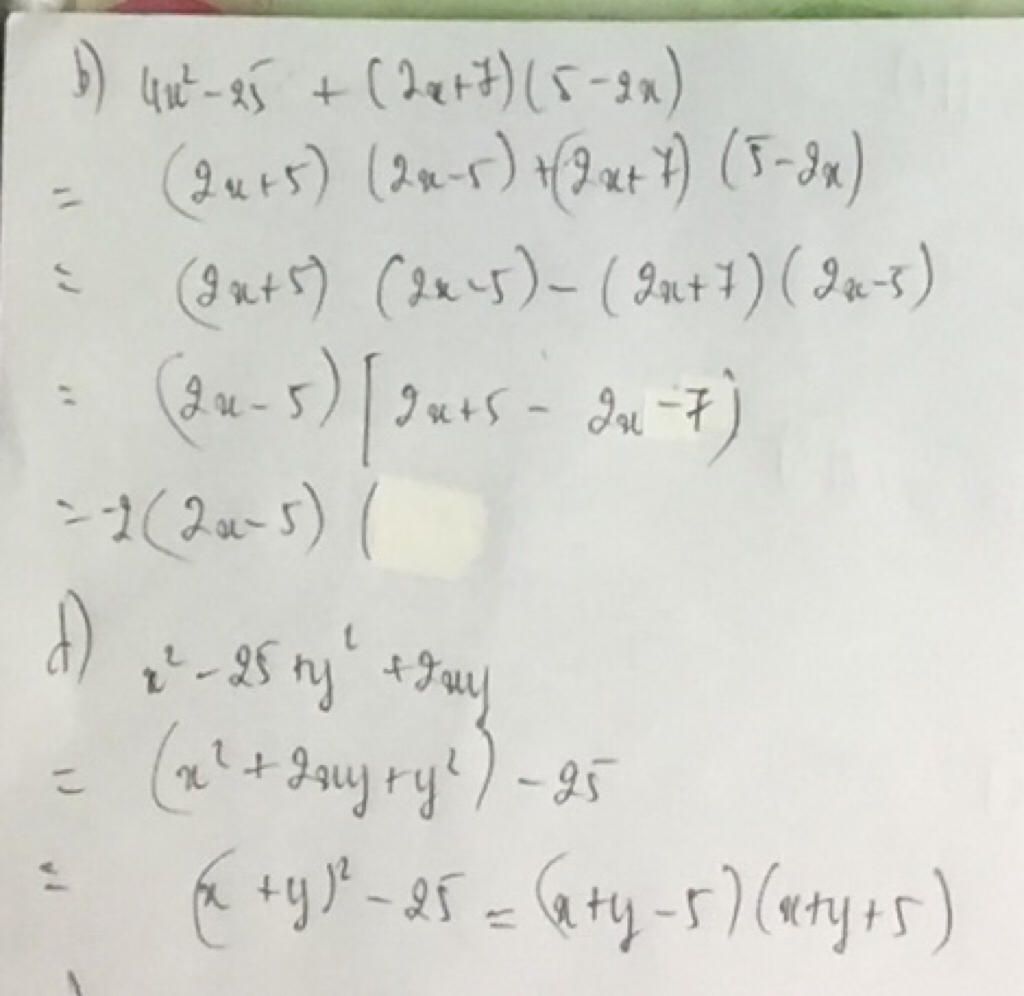 b) 4x² - 25 + (2x+7)(5-2x)
= (2x+5) (2x-5) + (2x+7) (5-2x)
= (2x+5) (2x-5) - (2x+7) (2x-5)
= (2x-5) [2x+5 - 2x -7)
= -2(2x-5) (
d) x² - 25 + y² + 2xy
= (x² + 2xy + y²) - 25
= (x + y)² - 25 = (x+y-5)(x+y+5)